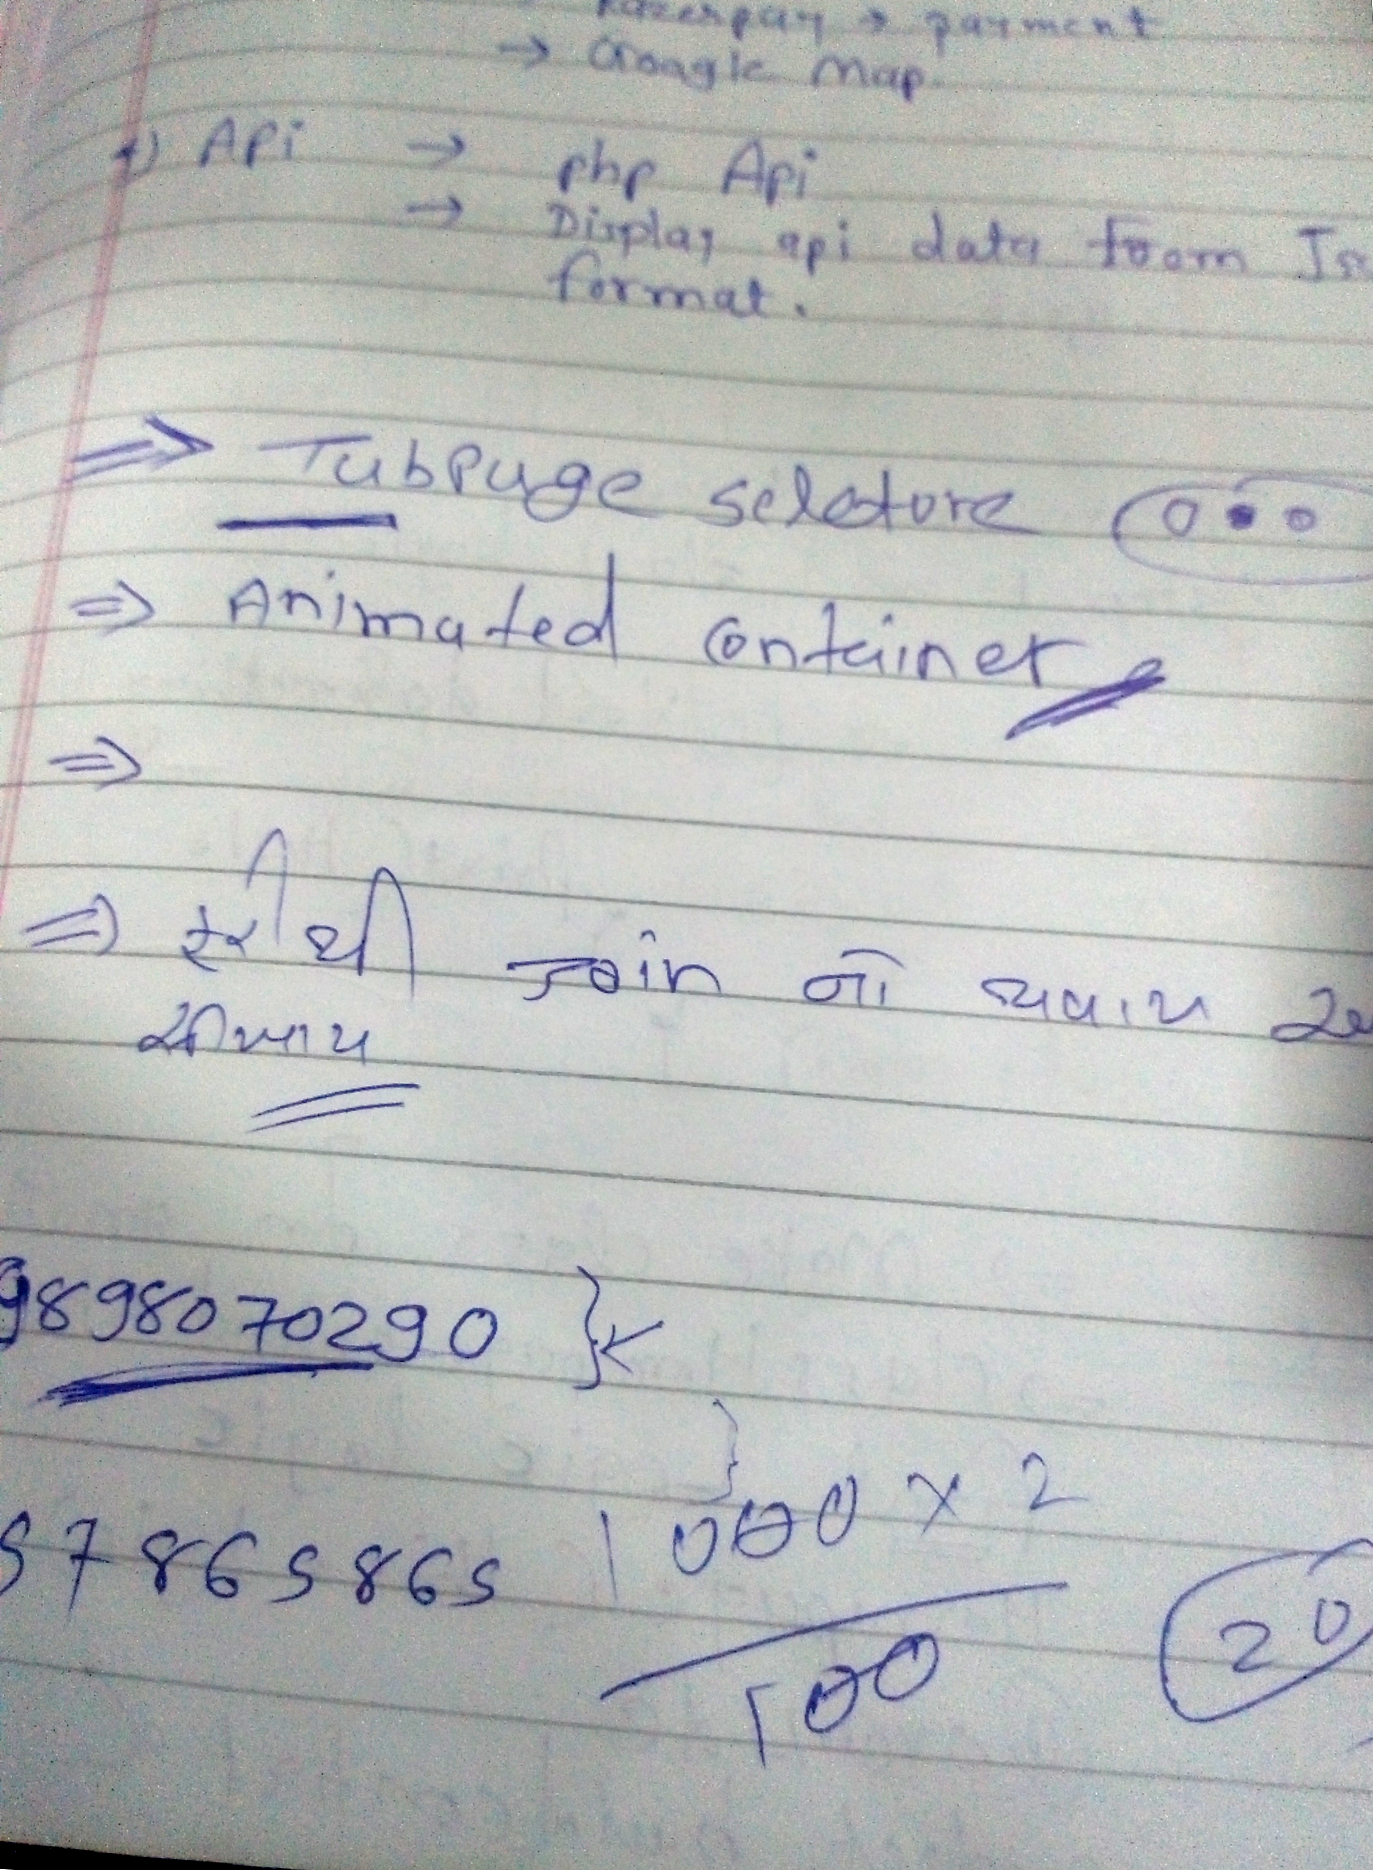 Razerpay → payment
→ Google Map.
f) APi → php Api
→ Display api data from
format.
⇒ TabPage seletore
⇒ Animated container
⇒
⇒ join નો
9898070290
57865865
1000 x 2
100
20